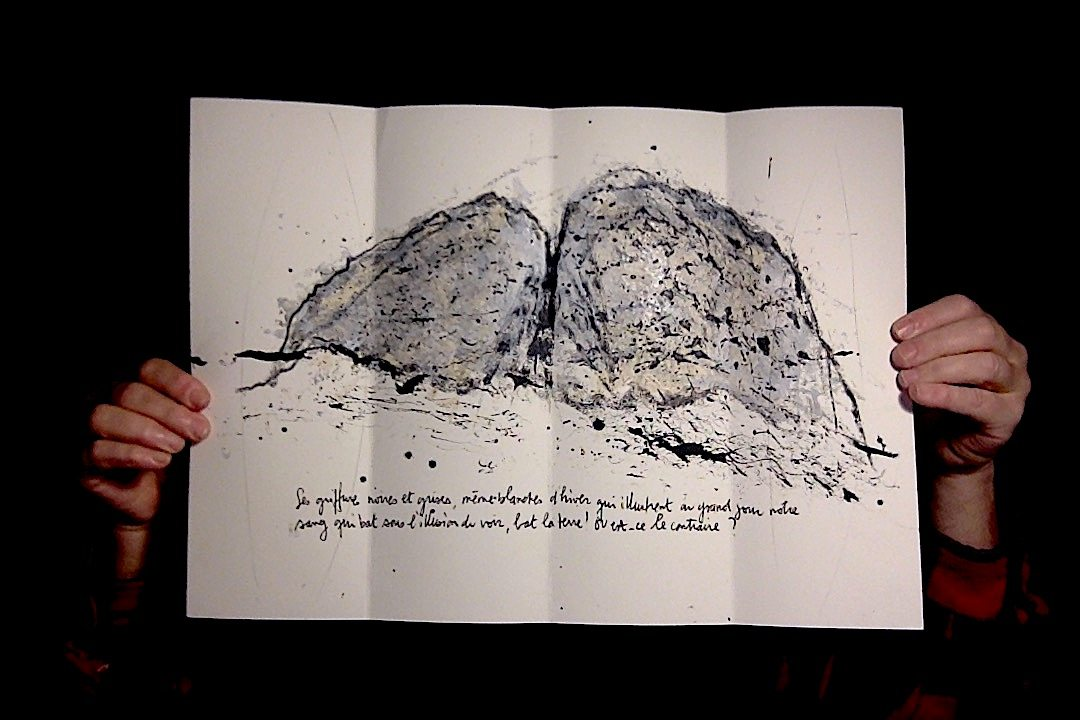 Les griffure noires et grises, même blanches d'hiver qui illustrent au grand jour notre
sang qui bat sous l'illusion du voir, bat la terre ! ou est-ce le contraire ?